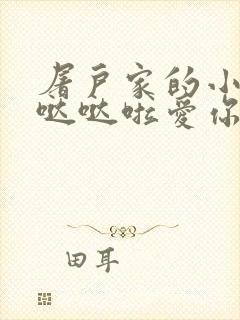 屠户家的小
哒哒啦爱你
田耳